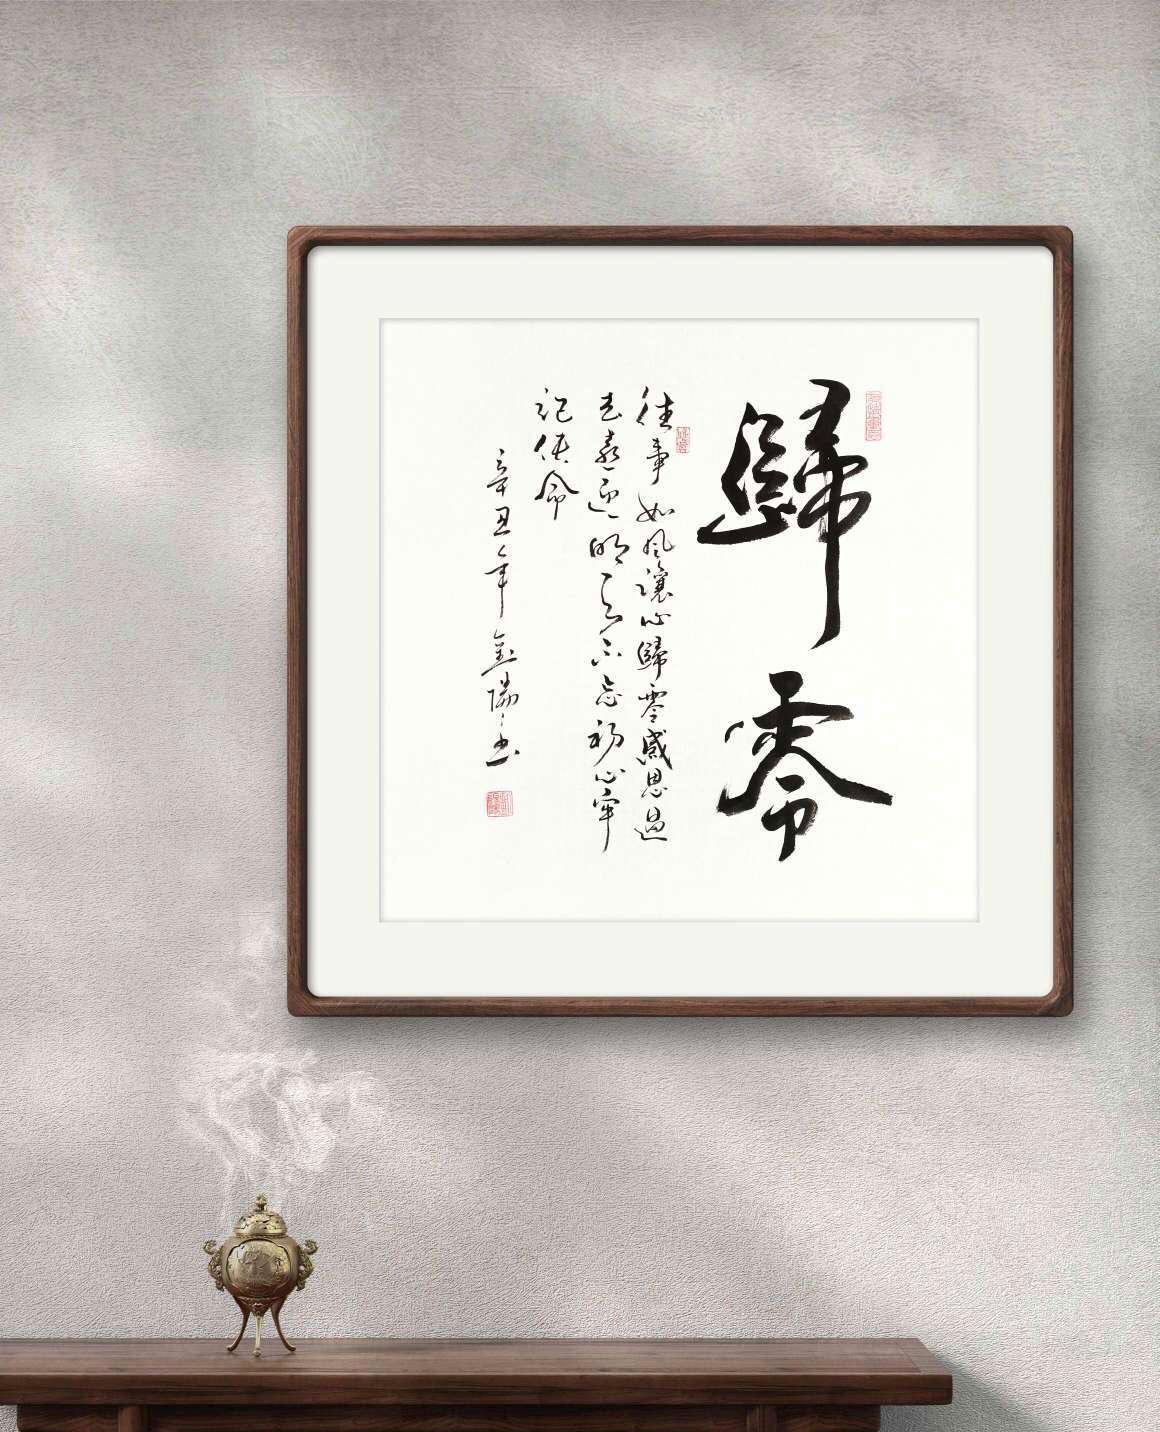 歸零
往事如風讓心歸零感恩過
去喜迎明天不忘初心牢
記使命
辛丑年金陽書